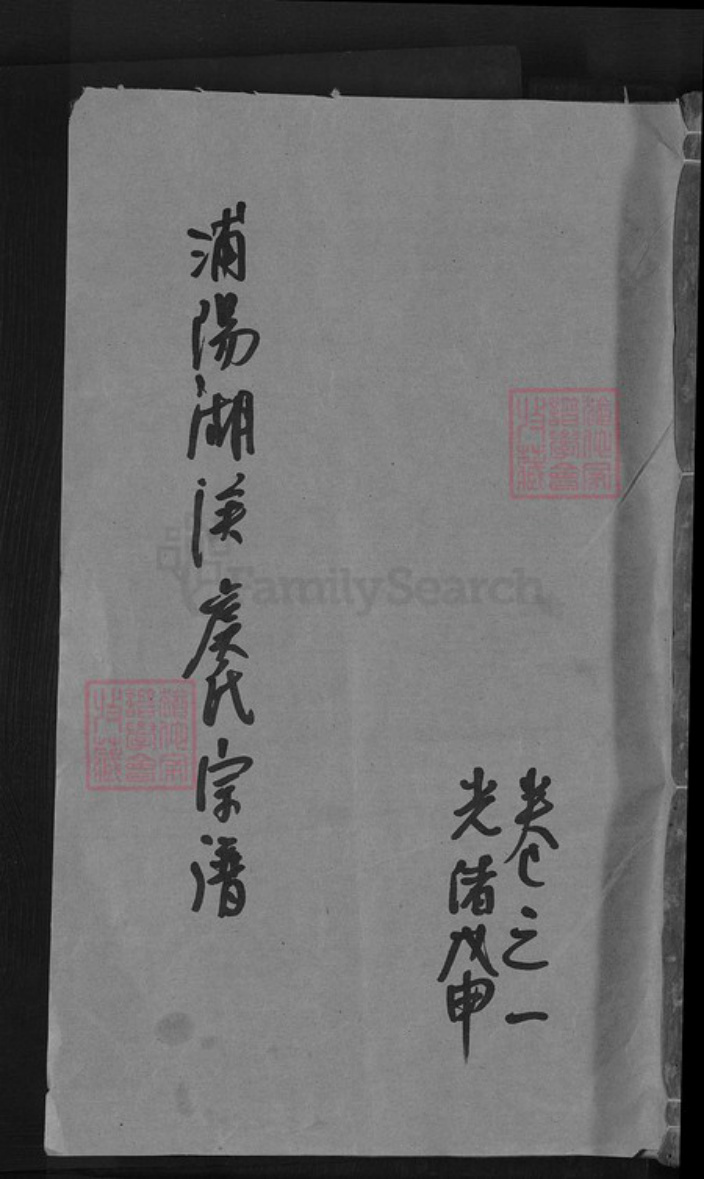 卷之一
光緒戊申
浦陽湖溪氏宗譜
猶他家
譜學會
收藏
猶他家
譜學會
收藏
FamilySearch